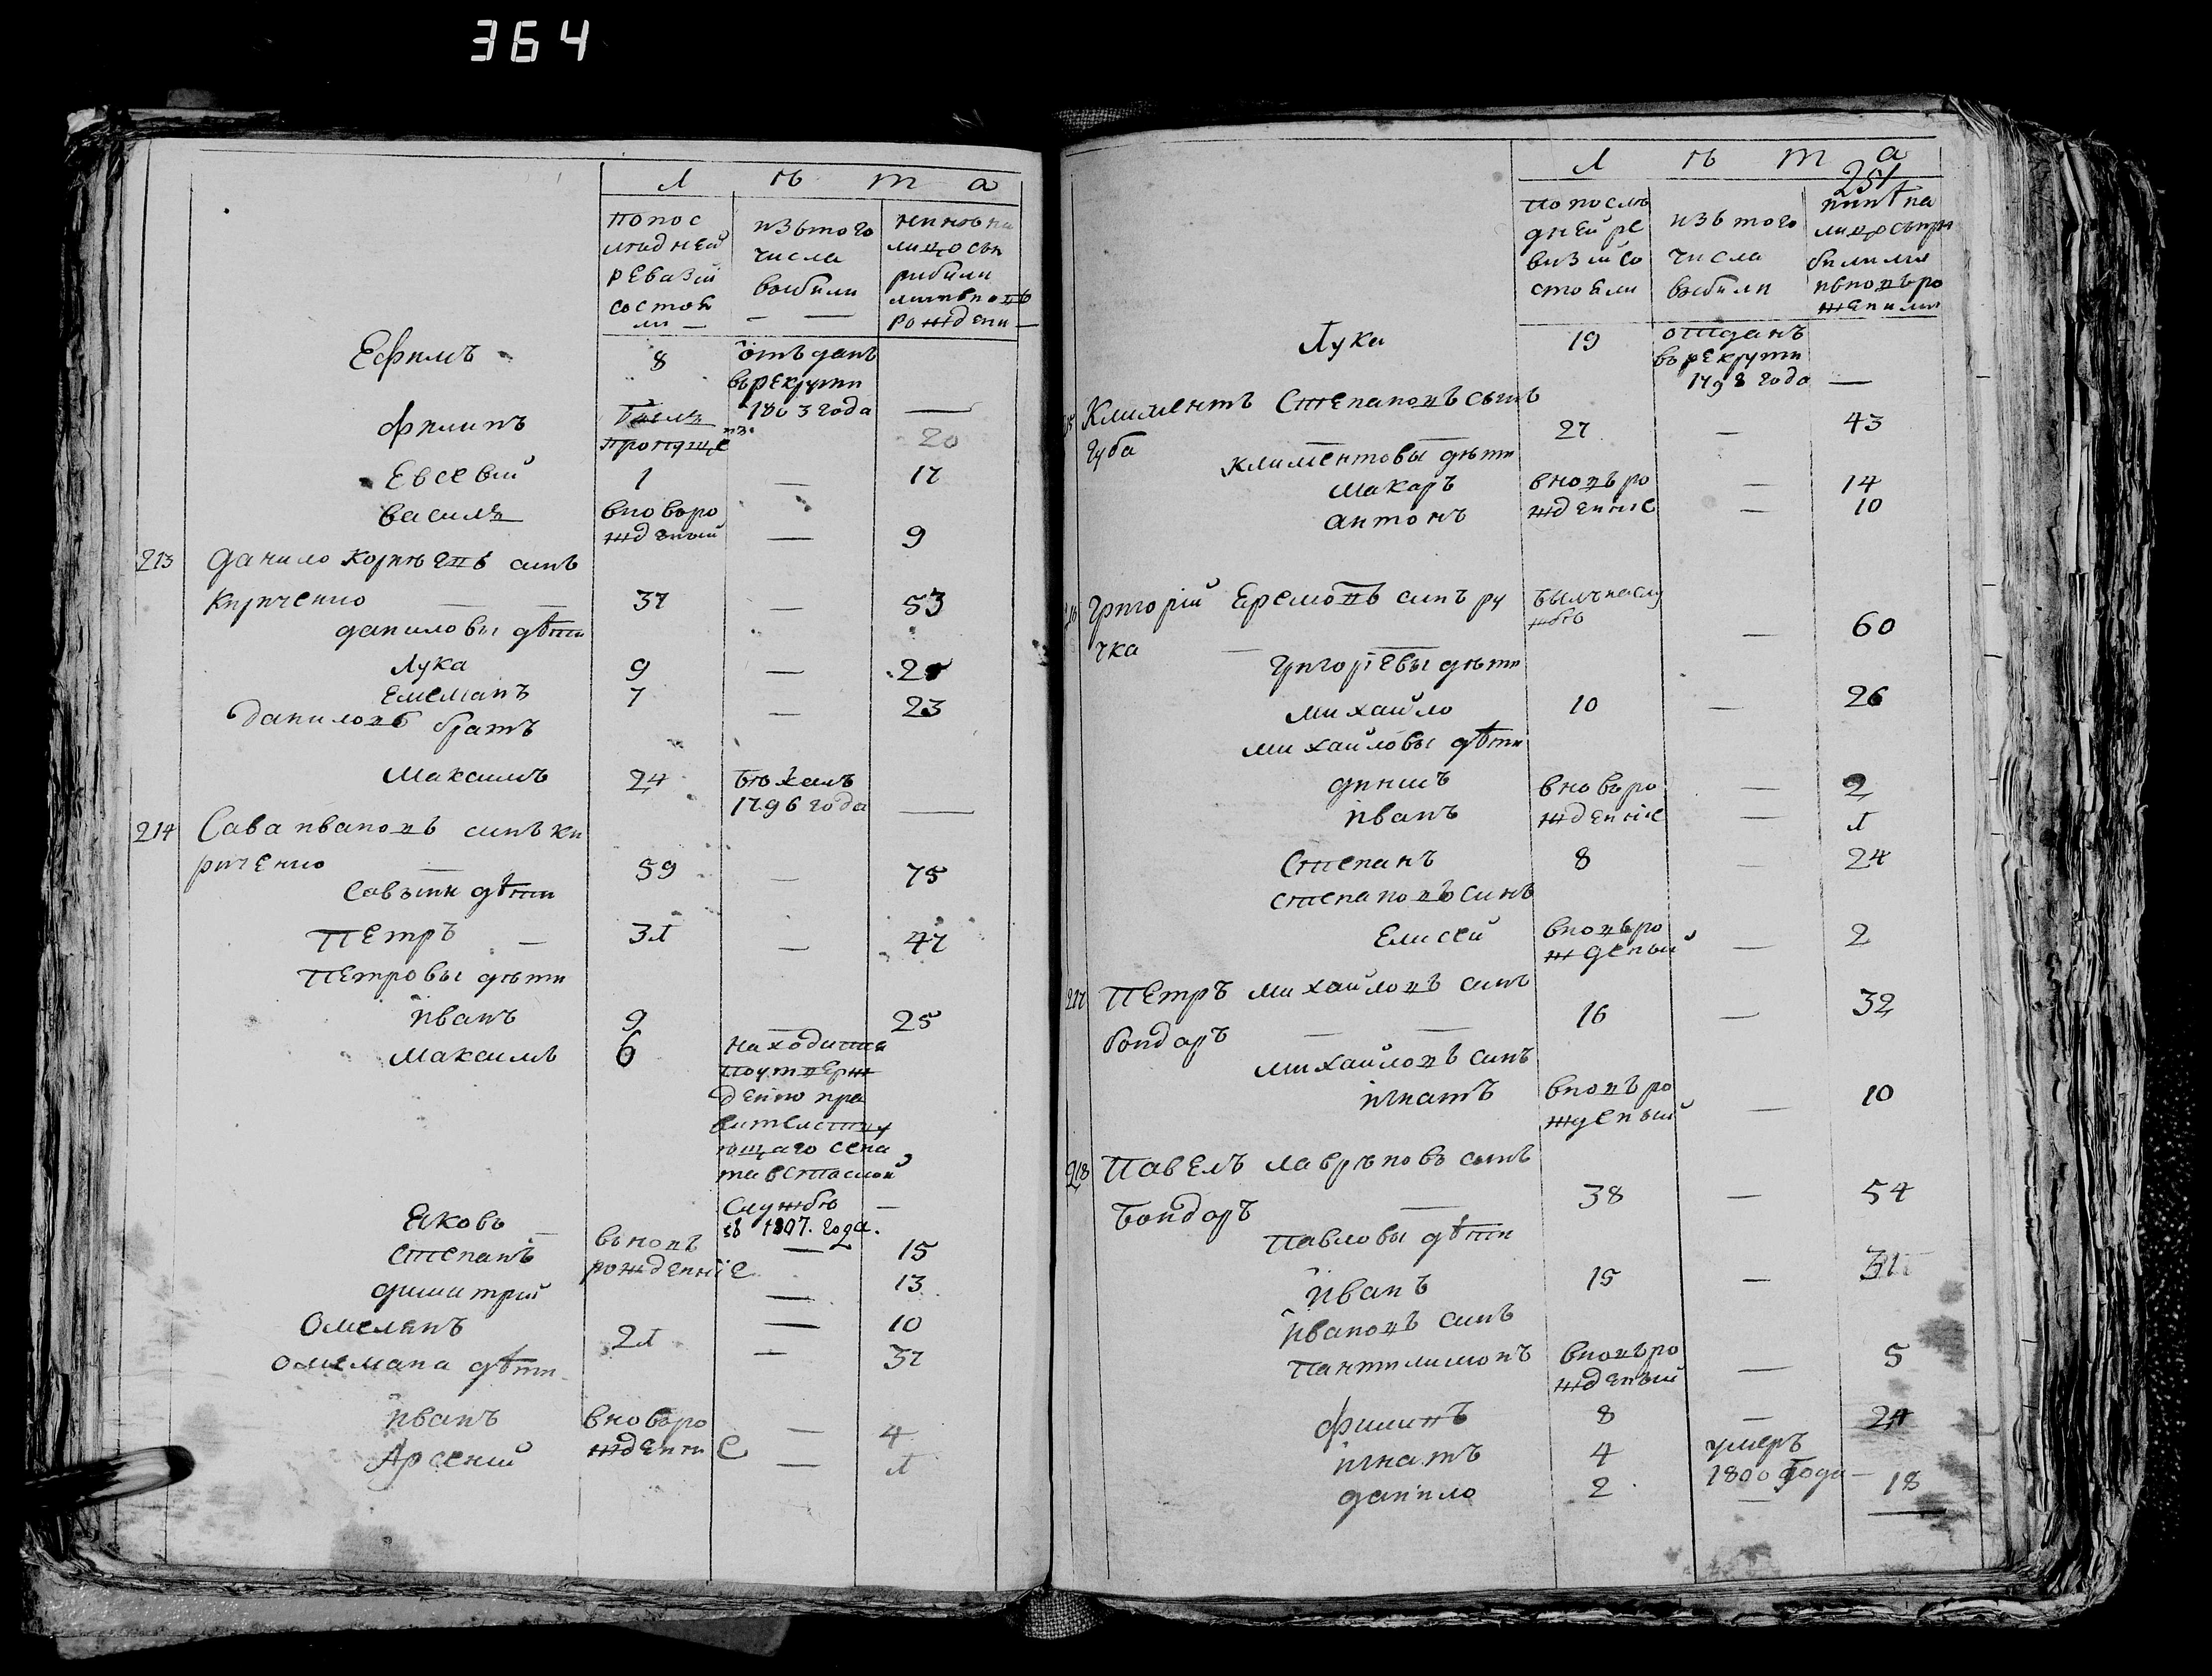 364
Л ѣ т а
попос лѣдней ревизіи состояли — изътого числа выбили — — нинѣна лицосъп рибили
Ефимъ 8 отъданъ върекрути 1803 года —
Филипъ билъ пропуще 20
Евсевій 1 — 17
Василь вновъро жденый — 9
213 Данило Корнѣевъ синъ
Кириченко — — 37 — 53
даниловы дѣти
Лука 9 —
Емельанъ 7 — 23
даниловъ братъ
Максимъ 24 бѣжалъ 1796 года —
214 Сава ивановъ синъ Ки
риченко — 59 — 75
Савины дѣти
Петръ — 31 — 47
Петровы дѣти
иванъ 9 — 25
Максимъ 6 находится поутверж денію пра вителству ющаго сена та встатской службѣ — съ 1807. года.
Яковъ — въновъ рожденніе — 15
Степанъ — 13
димитрій — 10
Омелянъ 21 — 37
омеляна дѣти
иванъ вновъро жденніе — 4
Арсеній — 1
Л ѣ т а
251
Попослѣ дней ре визіи со стояли изътого числа выбили
Лука 19 отданъ въ рекрути 1798 года —
215 Климентъ Степановъ сынъ
Губа 27 — 43
Климентовы дѣти
Макаръ вновъро жденніе — 14
антонъ — 10
216 Григорій Еремовъ синъ ру
чка — былънаслу жбѣ — 60
Григоріевы дѣти
Михайло 10 — 26
Михайловы дѣти
динисъ вновъро жденніе — 2
иванъ — 1
Степанъ 8 — 24
степановъ синъ
Елисей вновъро жденый — 2
217 Петръ Михайловъ синъ
бондаръ — — 16 — 32
михайловъ синъ
игнатъ вновъро жденый — 10
218 Павелъ лаврѣновъ сынъ
бондаръ — 38 — 54
Павловы дѣти
иванъ 15 — 31
ивановъ синъ
Пантилимонъ вновъро жденый — 5
Филипъ 8 — 24
игнатъ 4 умеръ 1800 года —
данило 2 — 18